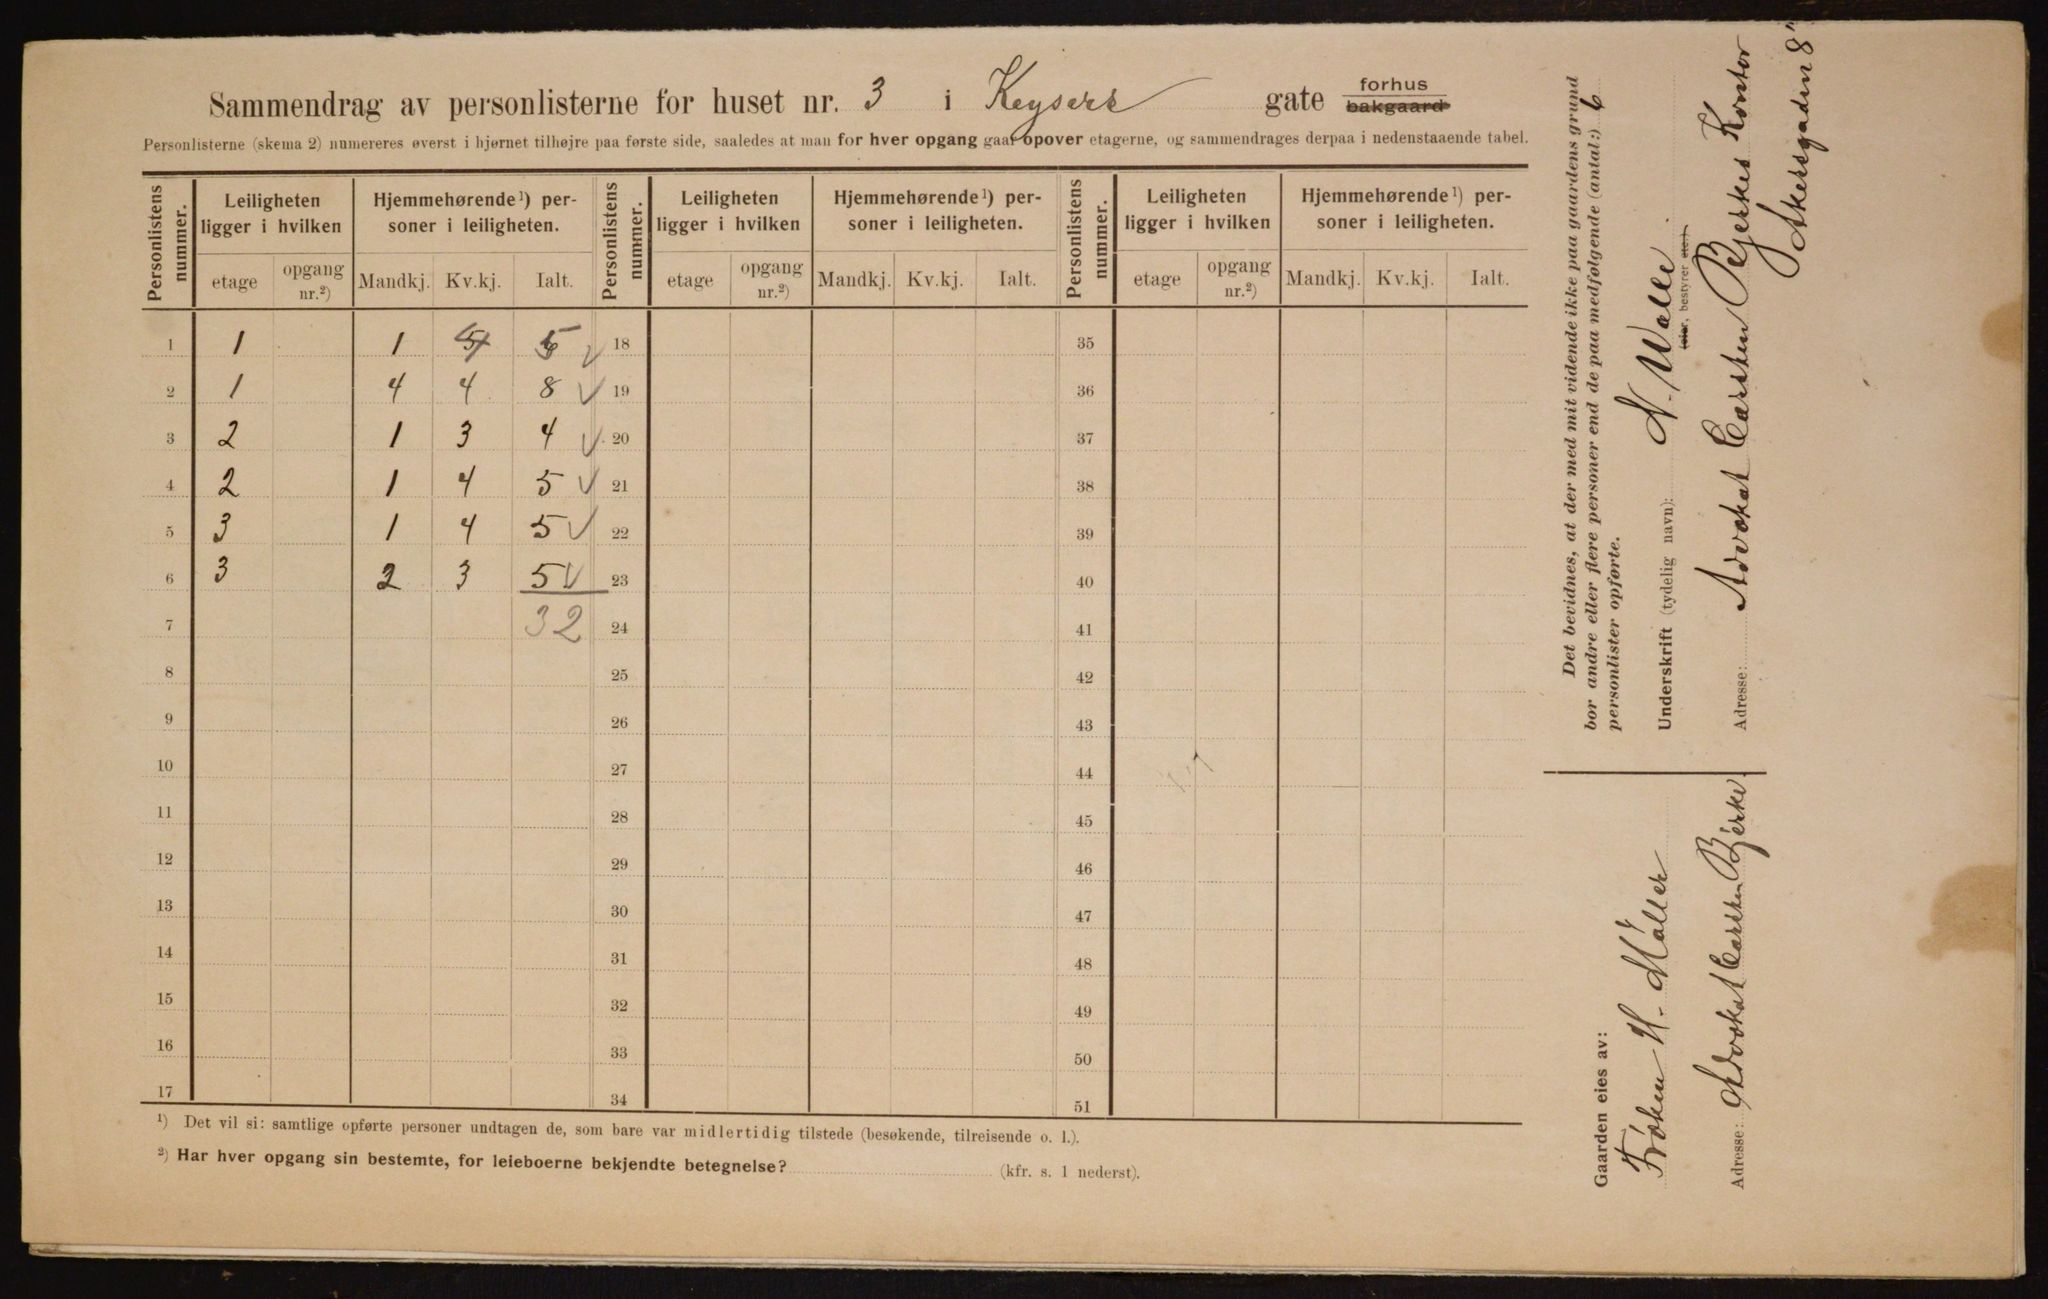 Sammendrag av personlisterne for huset nr. 3 i Keysers gate forhus bakgaard
Personlisterne (skema 2) numereres øverst i hjørnet tilhøjre paa første side, saaledes at man for hver opgang gaar opover etagerne, og sammendrages derpaa i nedenstaaende tabel.
Personlistens nummer. Leiligheten ligger i hvilken Hjemmehørende¹) personer i leiligheten. Personlistens nummer. Leiligheten ligger i hvilken Hjemmehørende¹) personer i leiligheten. Personlistens nummer. Leiligheten ligger i hvilken Hjemmehørende¹) personer i leiligheten.
etage opgang nr.²) Mandkj. Kv.kj. Ialt. etage opgang nr.²) Mandkj. Kv.kj. Ialt. etage opgang nr.²) Mandkj. Kv.kj. Ialt.
1 1 1 4 5 18 35
2 1 4 4 8 19 36
3 2 1 3 4 20 37
4 2 1 4 5 21 38
5 3 1 4 5 22 39
6 3 2 3 5 23 40
7 32 24 41
8 25 42
9 26 43
10 27 44
11 28 45
12 29 46
13 30 47
14 31 48
15 32 49
16 33 50
17 34 51
¹) Det vil si: samtlige opførte personer undtagen de, som bare var midlertidig tilstede (besøkende, tilreisende o. l.).
²) Har hver opgang sin bestemte, for leieboerne bekjendte betegnelse? (kfr. s. 1 nederst).
Det bevidnes, at der med mit vidende ikke paa gaardens grund
bor andre eller flere personer end de paa medfølgende (antal:) 6
personlister opførte.
Underskrift (tydelig navn): N. Walle
(eier, bestyrer etc.)
Adresse: Advokat Carsten Bjerkes Kontor
Akersgaden 8
Gaarden eies av:
Frøken H. Møller
Adresse: Advokat Carsten Bjerke